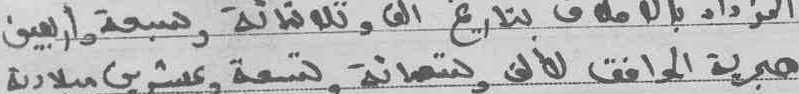 المزداد بالاملاف بتاريخ الف وثلاثمائة وسبعة وأربعين
هجرية الموافق لألف وتسعمائة وتسعة وعشرين ميلادية